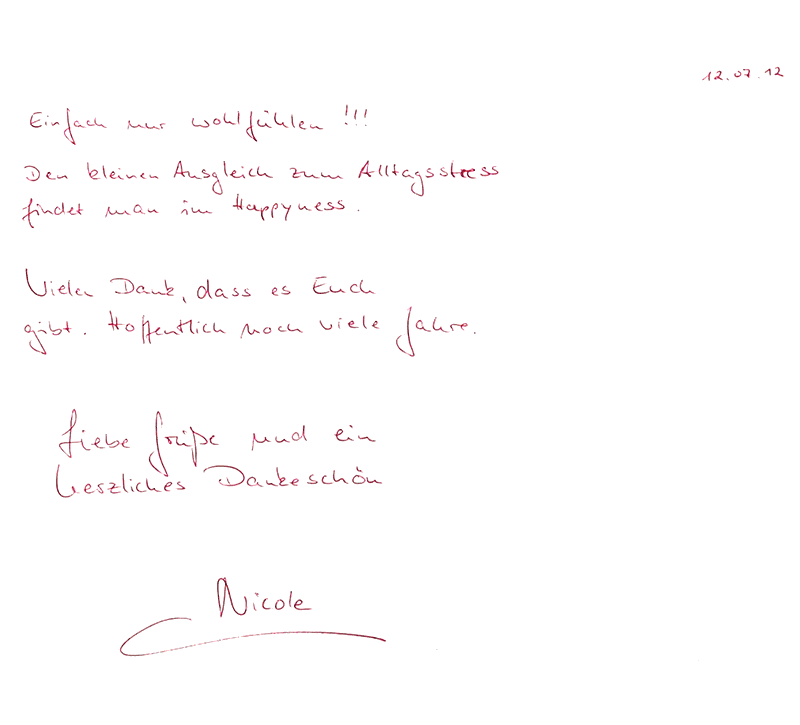 12.07.12
Einfach nur wohlfühlen !!!
Den kleinen Ausgleich zum Alltagsstress
findet man im Happyness.
Vielen Dank, dass es Euch
gibt. Hoffentlich noch viele Jahre.
Liebe Grüße und ein
herzliches Dankeschön
Nicole